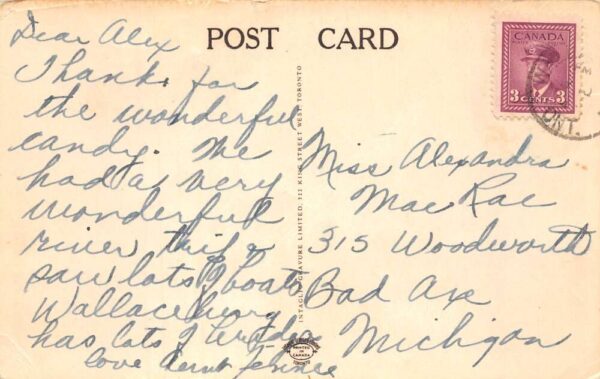 POST CARD
Dear Alex
Thanks for
the wonderful
candy. We
had a very
wonderful
river trip &
saw lots of boats
Wallaceburg
has lots of
love Aunt Jennie
CANADA
3 CENTS 3
ONT.
Miss Alexandra
Mac Rae
315 Woodworth
Bad Axe
Michigan
INTAGLIO GRAVURE LIMITED, 212 KING STREET WEST TORONTO
PRINTED IN CANADA
TORONTO